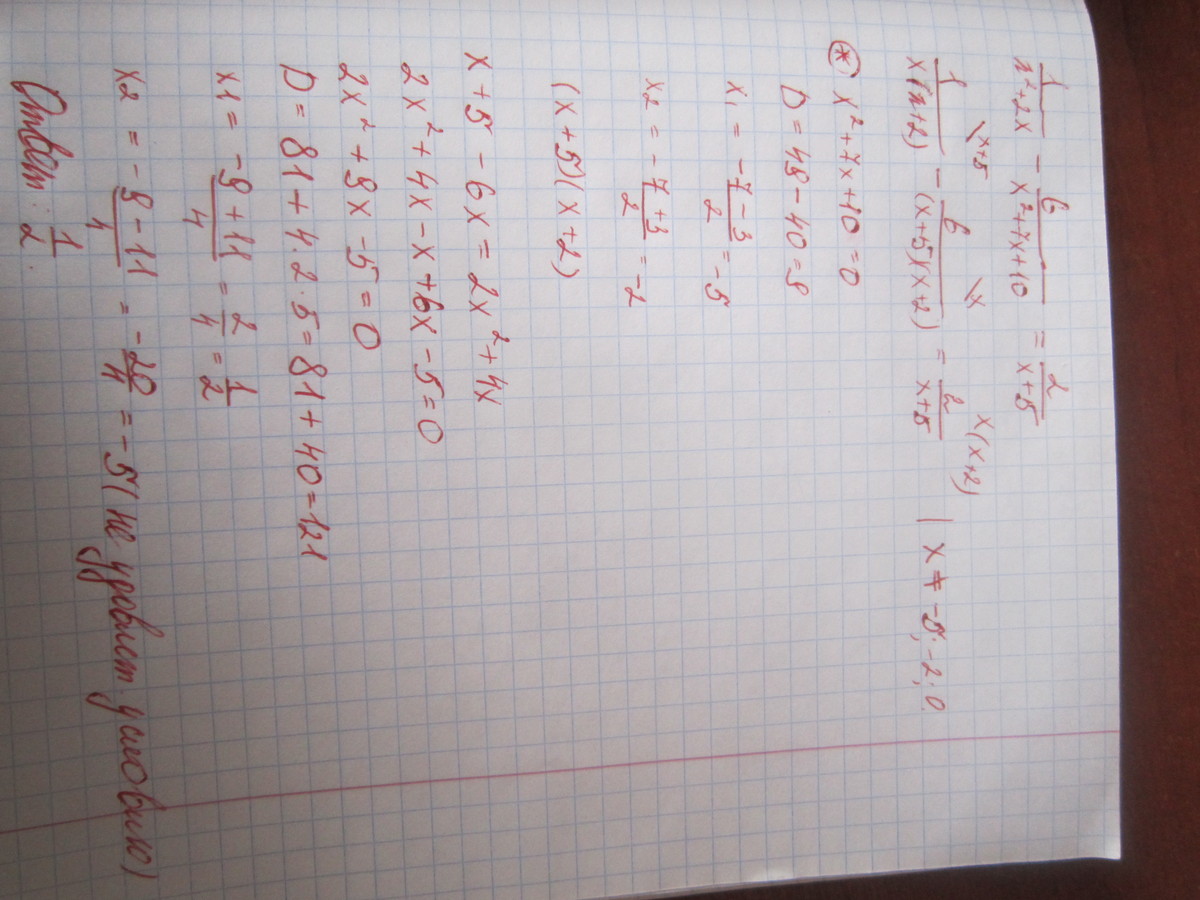 1/(x²+2x) - 6/(x²+7x+10) = 2/(x+5)
\x+5 \x x(x+2)
1/(x(x+2)) - 6/((x+5)(x+2)) = 2/(x+5) | x ≠ -5; -2; 0
(*) x²+7x+10=0
D = 49 - 40 = 9
x₁ = (-7-3)/2 = -5
x₂ = (-7+3)/2 = -2
(x+5)(x+2)
x+5 - 6x = 2x²+4x
2x²+4x-x+6x-5=0
2x²+9x-5=0
D = 81+4·2·5 = 81+40=121
x1 = (-9+11)/4 = 2/4 = 1/2
x2 = (-9-11)/4 = -20/4 = -5 (не удовлет. условию)
Ответ: 1/2.